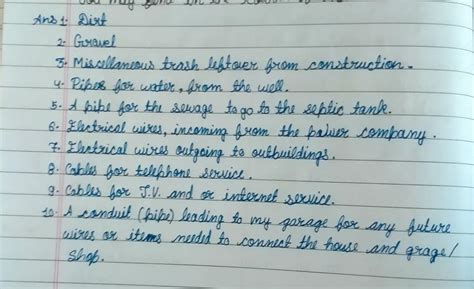 Ans 1- Dirt
2- Gravel
3- Miscellaneous trash leftover from construction.
4- Pipes for water, from the well.
5- A pipe for the sewage to go to the septic tank.
6- Electrical wires, incoming from the power company.
7- Electrical wires outgoing to outbuildings.
8- Cables for telephone service.
9- Cables for T.V. and or internet service.
10- A conduit (pipe) leading to my garage for any future
wires or items needed to connect the house and grage/
shop.